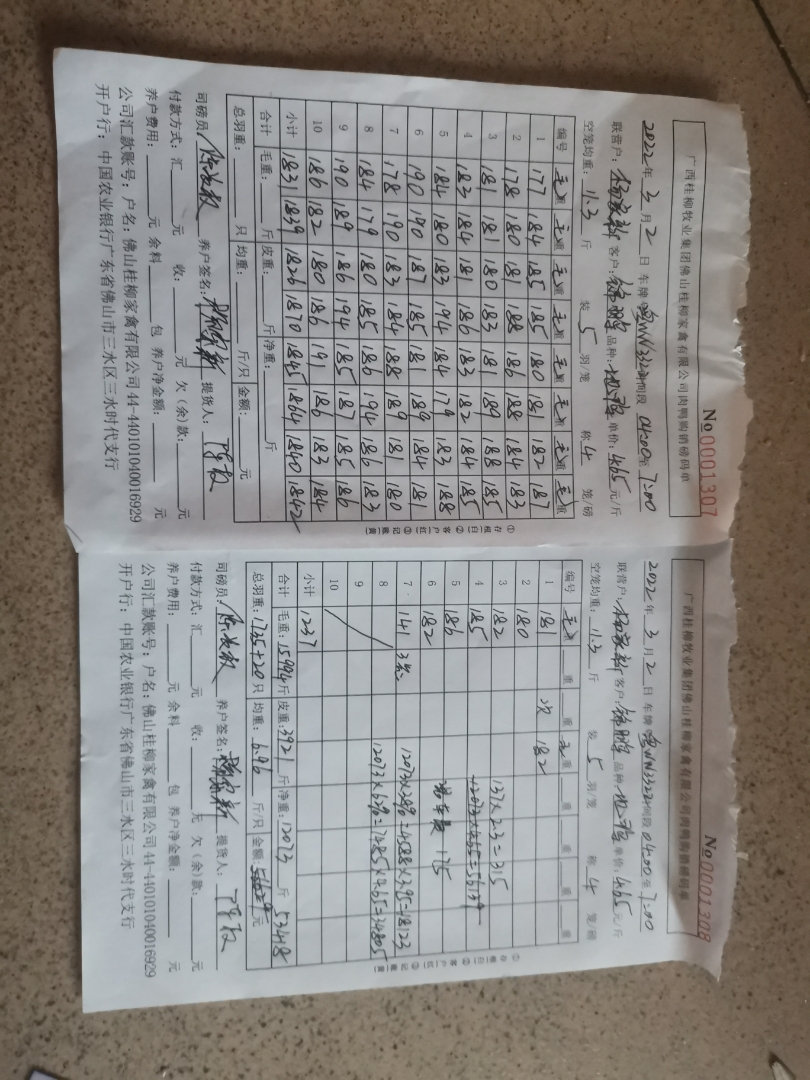 广西桂柳牧业集团佛山桂柳家禽有限公司肉鸭购销磅码单
No 0001307
2022年 3 月 2 日 车牌 时间段 04:00至 7:00
联营户: 客户: 品种: 单价: 4.65 元/斤
空笼均重: 11.3 斤 装 5 羽/笼 称 4 笼/磅
编号 毛重 毛重 毛重 毛重 毛重 毛重 毛重 毛重
1 177 184 185 185 180 181 182 187
2 178 180 181 188 186 188 184 183
3 181 181 180 183 181 189 188 185
4 183 184 181 186 183 182 184 185
5 184 180 183 194 184 179 183 188
6 190 190 187 185 181 189 184 181
7 178 190 183 184 188 189 181 180
8 184 179 180 185 186 194 186 183
9 190 189 186 194 185 187 185 186
10 186 182 180 186 191 186 183 184
小计 1831 1839 1826 1870 1845 1864 1840 1842
合计 毛重: 斤 皮重: 斤 净重: 斤
总羽重: 只 均重: 斤/只 金额: 元
①存根(白) ②客户(红) ③记账(黄)
司磅员: 养户签名: 提货人:
付款方式:汇 元 收: 元 欠(余)款: 元
养户费用: 元 余料 包 养户净金额: 元
公司汇款账号:户名:佛山桂柳家禽有限公司 44-440101040016929
开户行:中国农业银行广东省佛山市三水区三水时代支行
广西桂柳牧业集团佛山桂柳家禽有限公司肉鸭购销磅码单
No 0001308
2022年 3 月 2 日 车牌 时间段 04:00至 7:00
联营户: 客户: 品种: 单价: 4.65 元/斤
空笼均重: 11.3 斤 装 5 羽/笼 称 4 笼/磅
编号 毛重 重 重 毛重 重 重 重 重
1 181 次 182
2 180
3 182 137×2.3=315
4 185 12073×4.65=56139
5 186 175
6 182
7 141 3筐 12073×38%=4588×3.95=18123
8 12073×62%=7485×4.65=34805
9
10
小计 1237
合计 毛重: 15994 斤 皮重: 3921 斤 净重: 12073 斤
总羽重: 1735+20 只 均重: 6.96 斤/只 金额: 53418 元
①存根(白) ②客户(红) ③记账(黄)
司磅员: 养户签名: 提货人:
付款方式:汇 元 收: 元 欠(余)款: 元
养户费用: 元 余料 包 养户净金额: 元
公司汇款账号:户名:佛山桂柳家禽有限公司 44-440101040016929
开户行:中国农业银行广东省佛山市三水区三水时代支行